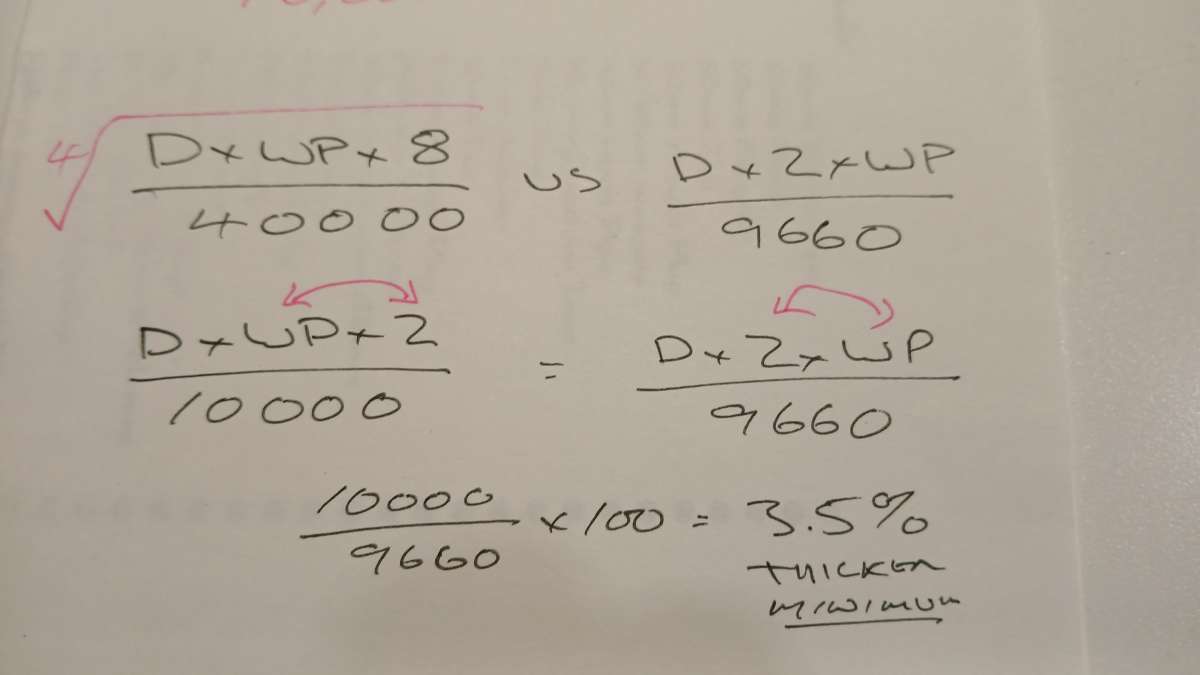 4√ D x WP x 8 / 40000 vs D x 2 x WP / 9660
D x WP x 2 / 10000 = D x 2 x WP / 9660
10000 / 9660 x 100 = 3.5%
THICKER
MINIMUM